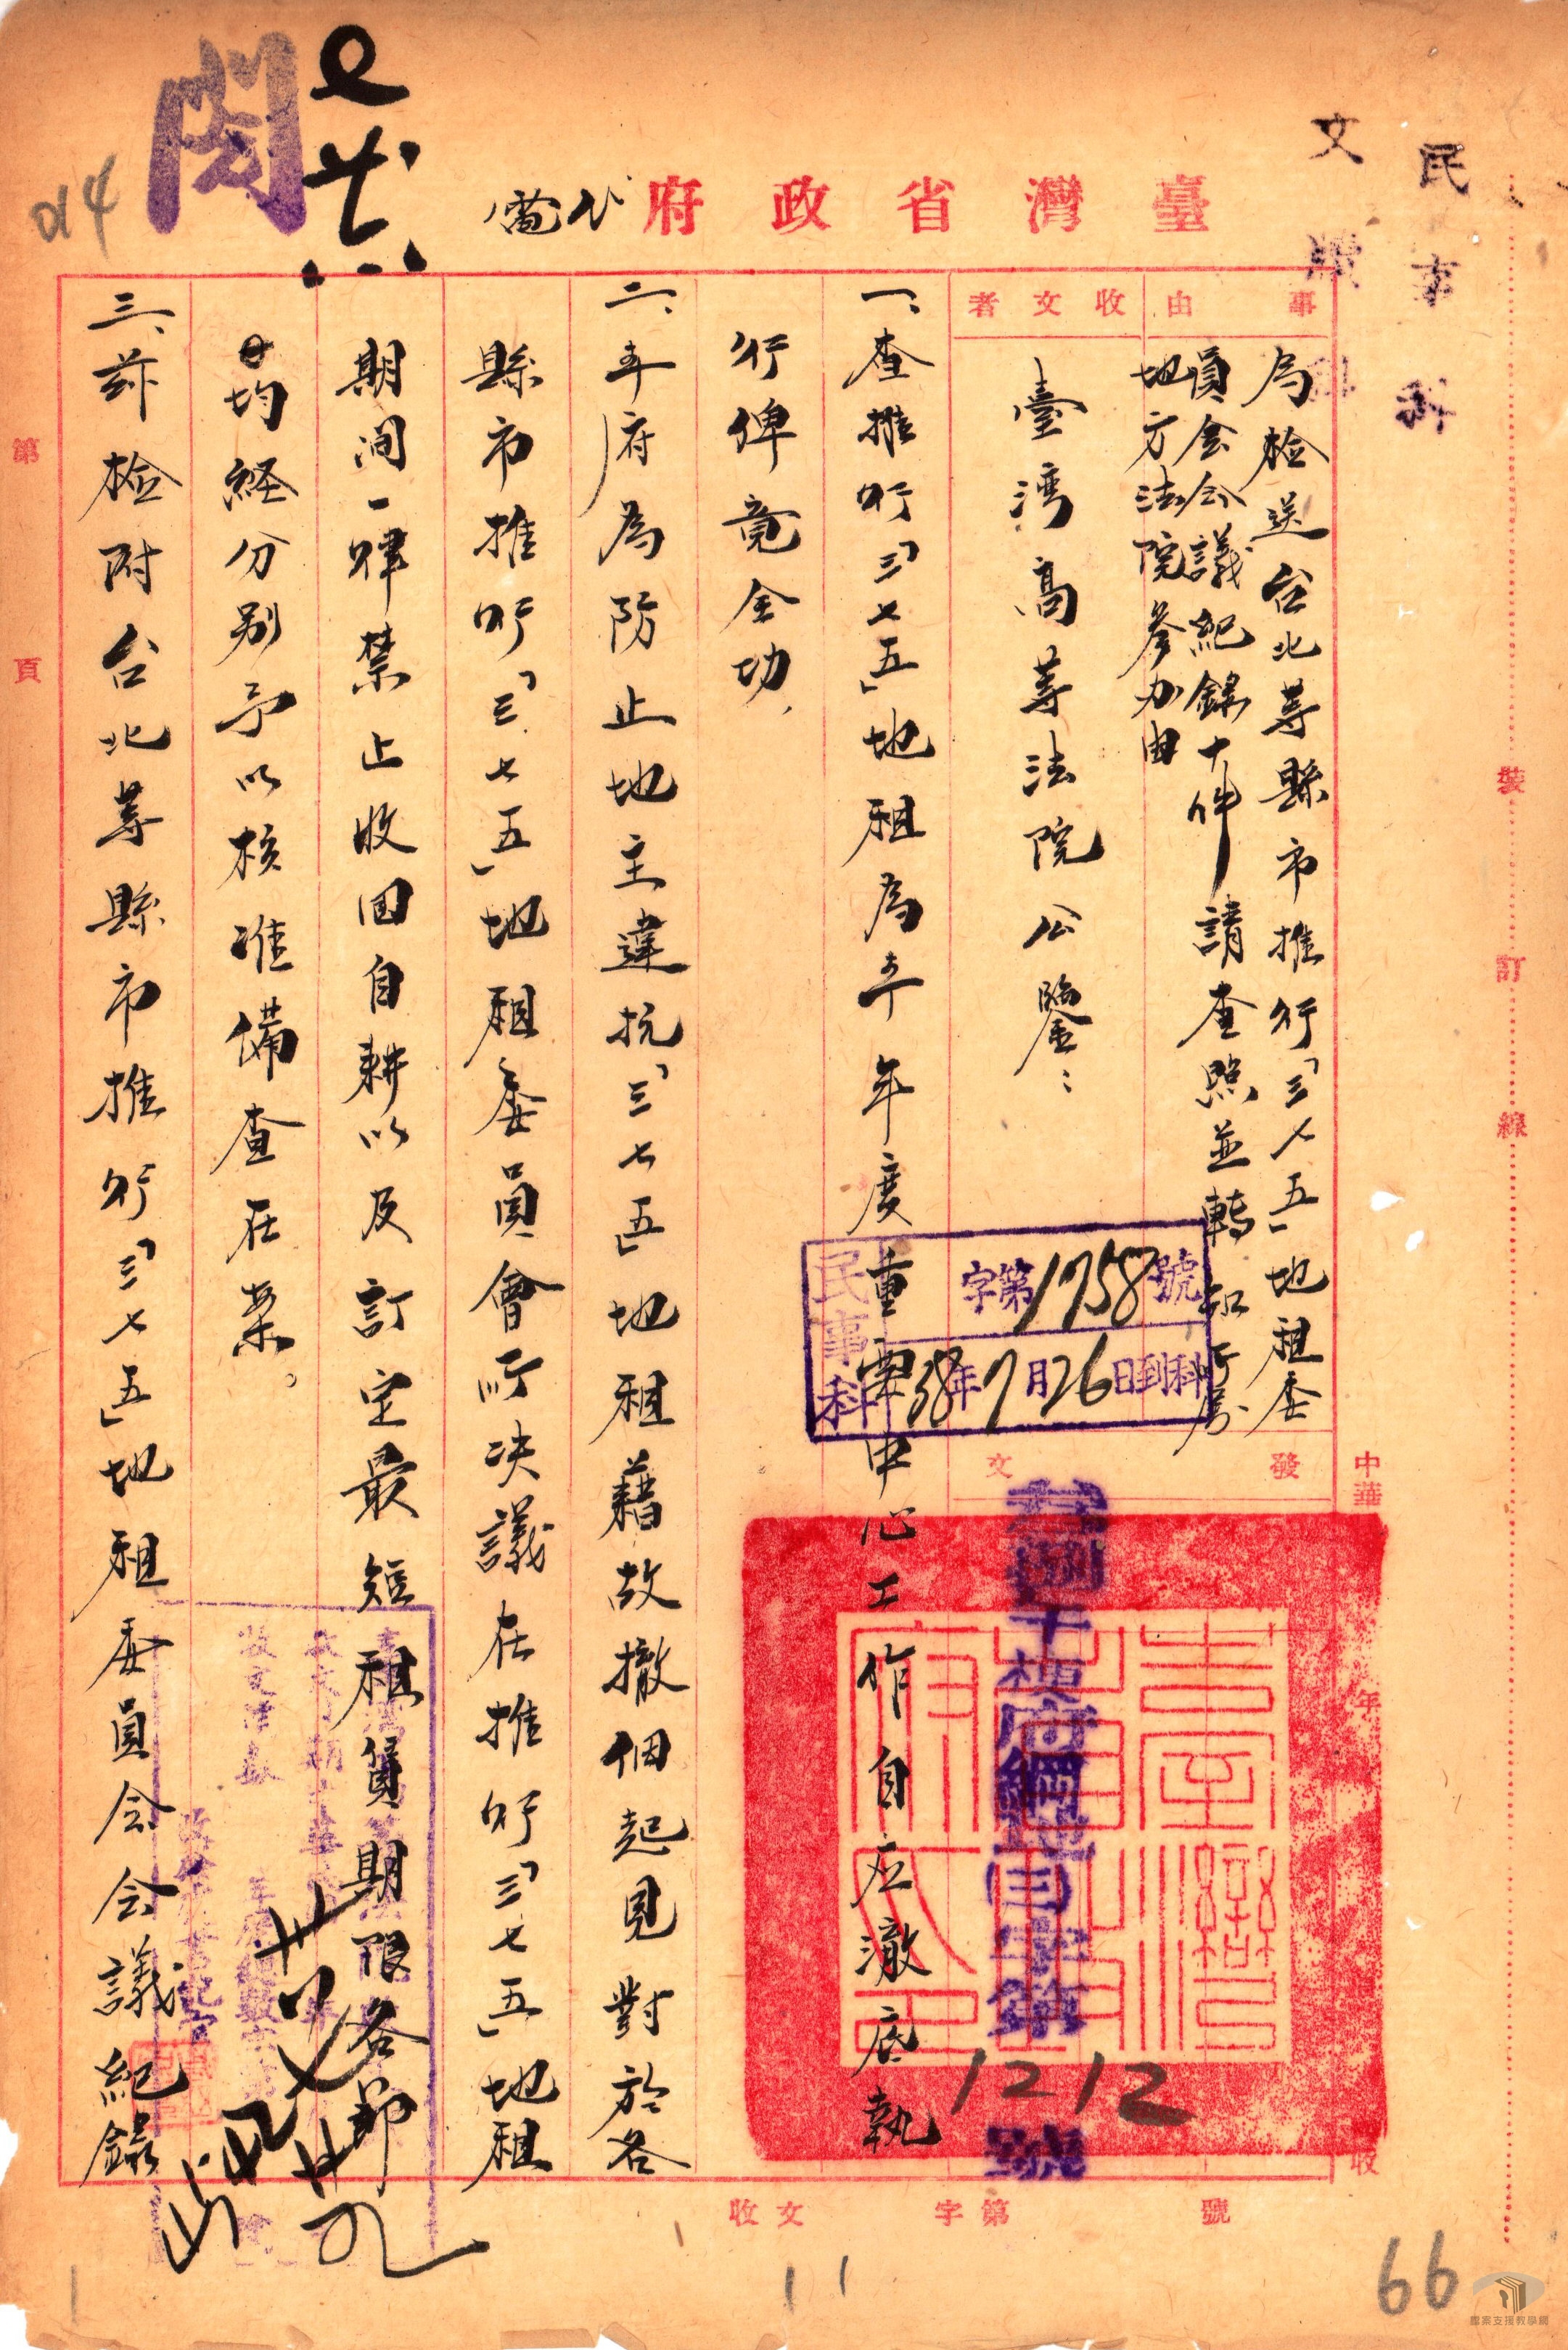 民事科
文牘科
閱
014
臺灣省政府代電
事由
為檢送台北等縣市推行「三七五」地租委
員会会議紀錄十件請查照並轉知所屬
地方法院參办由
收文者
臺湾高等法院公鑒：
民事科
字第1758號
38年7月26日到科
發文
中華
年
1212
號
一、查推行「三七五」地租為本年度重要中心工作自应澈底執
行俾竟全功、
二、本府為防止地主違抗「三七五」地租藉故撤佃起見對於各
縣市推行「三七五」地租委員會所決議在推行「三七五」地租
期间一律禁止收回自耕以及訂定最短租賃期限各節
均経分別予以核准備查在案。
三、茲檢附台北等縣市推行「三七五」地租委員会会議紀錄
第 頁
裝訂線
收文 字第 號
收
66
檔案支援教學網